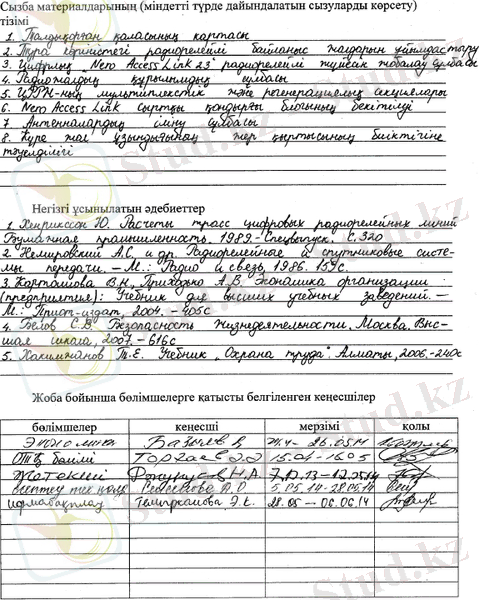 Сызба материалдарының (міндетті түрде дайындалатын сызуларды көрсету)
тізімі
1. Талдықорған қаласының картасы
2. Тура көріністегі радиорелейлі байланыс жолдарын ұйымдастару
3. Цифрлық "Nero Access Link 23" радиорелейлі жүйесін жобалау сұлбасы
4. Радиожолдың құрылымдық сұлбасы
5. ЦРРЖ-ның мультиплекстік және регенерациялық секциялары
6. Nero Access Link сыртқы қондырғы блогының бекітілуі
7. Антенналардың іліну сұлбасы
8. Күре жол ұзындығының жер қыртысының биіктігіне
тәуелділігі
Негізгі ұсынылатын әдебиеттер
1. Хенрикссон Ю. Расчеты трасс цифровых радиорелейных линий
Бумажная промышленность. 1989.-Спецвыпуск. С.320
2. Немировский А.С. и др. Радиорелейные и спутниковые систе-
мы передачи. – М.: Радио и связь, 1986. 159с.
3. Карташова В.Н., Приходько А.В. Экономика организации
(предприятия): Учебник для высших учебных заведений. –
М.: Приор-издат, 2004. – 405с
4. Белов С.В. Безопасность жизнедеятельности. Москва. Выс-
шая школа, 2007. – 616с
5. Хакимжанов Т.Е. Учебник "Охрана труда". Алматы, 2006.-240с
Жоба бойынша бөлімшелерге қатысты белгіленген кеңесшілер
бөлімшелер кеңесші мерзімі қолы
Экономика Базылов 26.05.14
ӨТҚ бөлімі 15.04-16.05
Ж.А.
есептеу тех. қолд. А.О. 5.05.14-28.05.14
нормабақылау Темирханова Э.Е. 28.05 – 06.06.14
Stud.kz